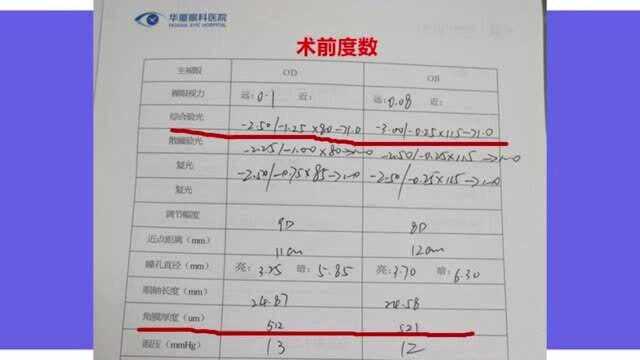 华厦眼科医院
HUAXIA EYE HOSPITAL
术前度数
主视眼 OD OB
裸眼视力 远:0.1 近: 远:0.08 近:
综合验光 -2.50/-1.25×80→1.0 -3.00/-0.25×115→1.0
散瞳验光 -2.25/-1.00×80→1.0 -2.50/-0.25×115→1.0
复光 -2.50/-0.75×85→1.0 -2.50/-0.25×115→1.0
复光
调节幅度 9D 8D
近点距离(mm) 11cm 12cm
瞳孔直径(mm) 亮:3.25 暗:5.85 亮:3.70 暗:6.30
眼轴长度(mm) 24.87 24.58
角膜厚度(um) 512 521
眼压(mmHg) 13 12